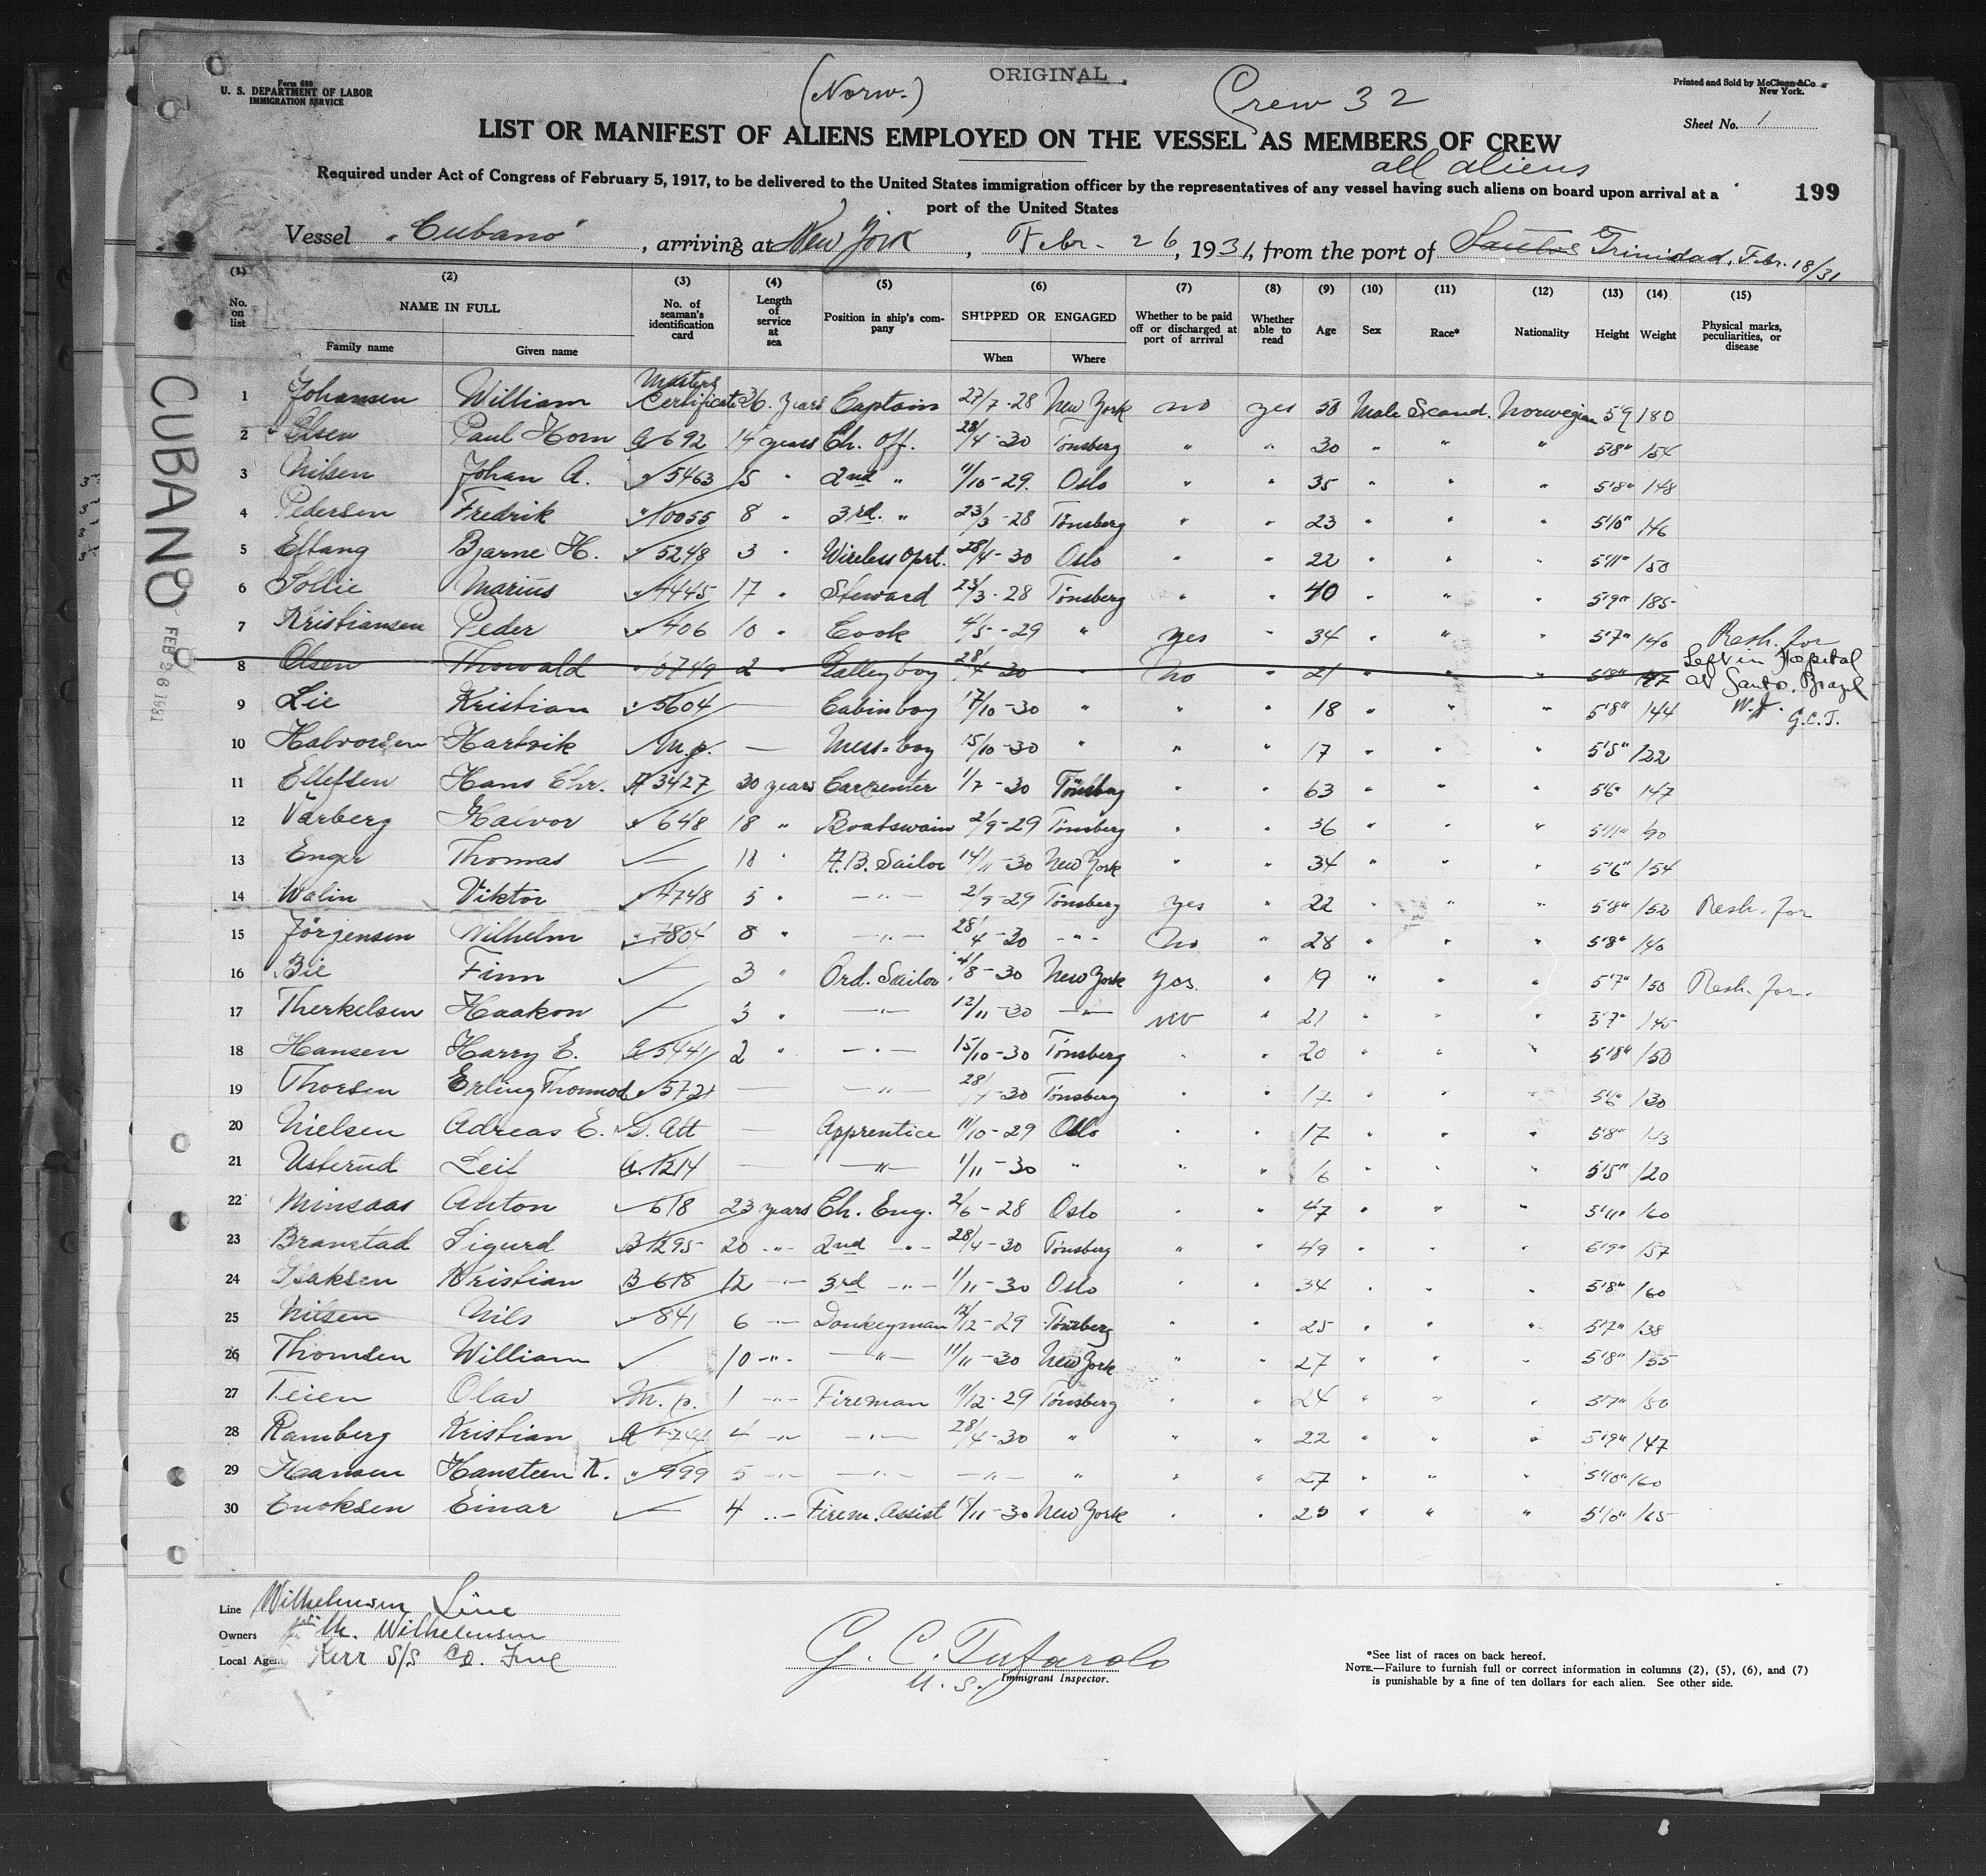 Form 689
U. S. DEPARTMENT OF LABOR
IMMIGRATION SERVICE
(Norw.)
ORIGINAL
Crew 32
Printed and Sold by McClunn & Co
New York.
Sheet No. 1
LIST OR MANIFEST OF ALIENS EMPLOYED ON THE VESSEL AS MEMBERS OF CREW
all aliens
Required under Act of Congress of February 5, 1917, to be delivered to the United States immigration officer by the representatives of any vessel having such aliens on board upon arrival at a
port of the United States
199
Vessel "Cubano", arriving at New York, Febr. 26, 1931, from the port of Santos Trinidad, Febr. 18/31
(1) (2) (3) (4) (5) (6) (7) (8) (9) (10) (11) (12) (13) (14) (15)
No. on list NAME IN FULL No. of seaman's identification card Length of service at sea Position in ship's company SHIPPED OR ENGAGED Whether to be paid off or discharged at port of arrival Whether able to read Age Sex Race* Nationality Height Weight Physical marks, peculiarities, or disease
Family name Given name When Where
1 Johansen William Masters Certificate 26. years Captain 27/7-28 New York no yes 50 Male Scand. Norwegian 5'9 180
2 Olsen Paul Horn A 692 14 years Ch. Off. 28/4-30 Tönsberg " " 30 " " " 5'8" 154
3 Nilsen Johan A. " 5463 15 " 2nd " 11/10-29. Oslo " " 35 " " " 5'8" 148
4 Pedersen Fredrik " 10055 8 " 3rd. " 23/3-28 Tönsberg " " 23 " " " 5'10" 146
5 Eftang Bjarne H. " 5248 3 " Wireless Oprt. 28/4-30 Oslo " " 22 " " " 5'11" 150
6 Sollie Marius " 4445 17 " Steward 23/3-28 Tönsberg " " 40 " " " 5'9" 185
7 Kristiansen Peder " 406 10 " Cook 4/5-29 " yes " 34 " " " 5'7" 140 Resh. for
8 Olsen Thorvald " 10749 2 " Galleyboy 28/4-30 " No " 21 " " " 5'8" Left in Hospital
at Santo, Brazil
9 Lie Kristian " 5604 — Cabinboy 17/10-30 " " " 18 " " " 5'8" 144 G.C.T.
10 Halvorsen Hartvik M.p. — Mess-boy 15/10-30 " " " 17 " " " 5'5" 122
11 Ellefsen Hans Chr. A 3427 30 years Carpenter 1/7-30 Tönsberg " " 63 " " " 5'6" 147
12 Varberg Halvor " 648 18 " Boatswain 2/9-29 Tönsberg " " 36 " " " 5'11"
13 Enger Thomas — " A.B. Sailor 14/11-30 New York " " 34 " " " 5'6" 154
14 Walin Viktor " 4748 5 " — " — 2/9-29 Tönsberg yes " 22 " " " 5'8" 152 Resh. for
15 Jörgensen Wilhelm " 7804 8 " — " — 28/4-30 — " — No " 28 " " " 5'8" 140
16 Bie Finn 3 " Ord. Sailor 4/8-30 New York yes " 19 " " " 5'7" 150 Resh. for.
17 Therkelsen Haakon 3 " — " — 12/11-30 — " — no " 21 " " " 5'7" 145
18 Hansen Harry E. A 5441 2 " — " — 15/10-30 Tönsberg " " 20 " " " 5'8" 150
19 Thorsen Erling Thormod " 5721 — " — 28/4-30 Tönsberg " " 17 " " " 5'6" 130
20 Nielsen Adreas E. D. Att — Apprentice 11/10-29 Oslo " " 17 " " " 5'8" 143
21 Usterud Leif A. 1214 — " — 1/11-30 " " " 16 " " " 5'5" 120
22 Minsaas Anton " 618 23 years Ch. Eng. 2/6-28 Oslo " " 47 " " " 5'11" 160
23 Branstad Sigurd B 1295 20 — " — 2nd — " — 28/4-30 Tönsberg " " 49 " " " 157
24 Isaksen Kristian B 618 12 — " — 3rd — " — 1/11-30 Oslo " " 34 " " " 5'8" 160
25 Nilsen Nils " 841 6 — " — Donkeyman 12/12-29 Tönsberg " " 25 " " " 5'7" 138
26 Thomsen William 10 — " — — " — 11/11-30 New York " " 27 " " " 5'8" 155
27 Teien Olav M. p. 1 — " — Fireman 11/12-29 Tönsberg " " 24 " " " 5'7" 150
28 Ramberg Kristian A 4 — " — — " — 28/4-30 " " " 22 " " " 5'9" 147
29 Hansen Hansteen K. " 999 5 — " — — " — — " — " " " 27 " " " 5'10" 160
30 Enoksen Einar — 4 — " — Firem. Assist 15/11-30 New York " " " " " 5'10" 165
CUBANO
FEB 26 1931
Line Wilhelmsen Line
Owners Wilh. Wilhelmsen
Local Agents Kerr S/S Co. Inc
G. C. Tufarolo
U. S. Immigrant Inspector.
*See list of races on back hereof.
NOTE.—Failure to furnish full or correct information in columns (2), (5), (6), and (7)
is punishable by a fine of ten dollars for each alien. See other side.